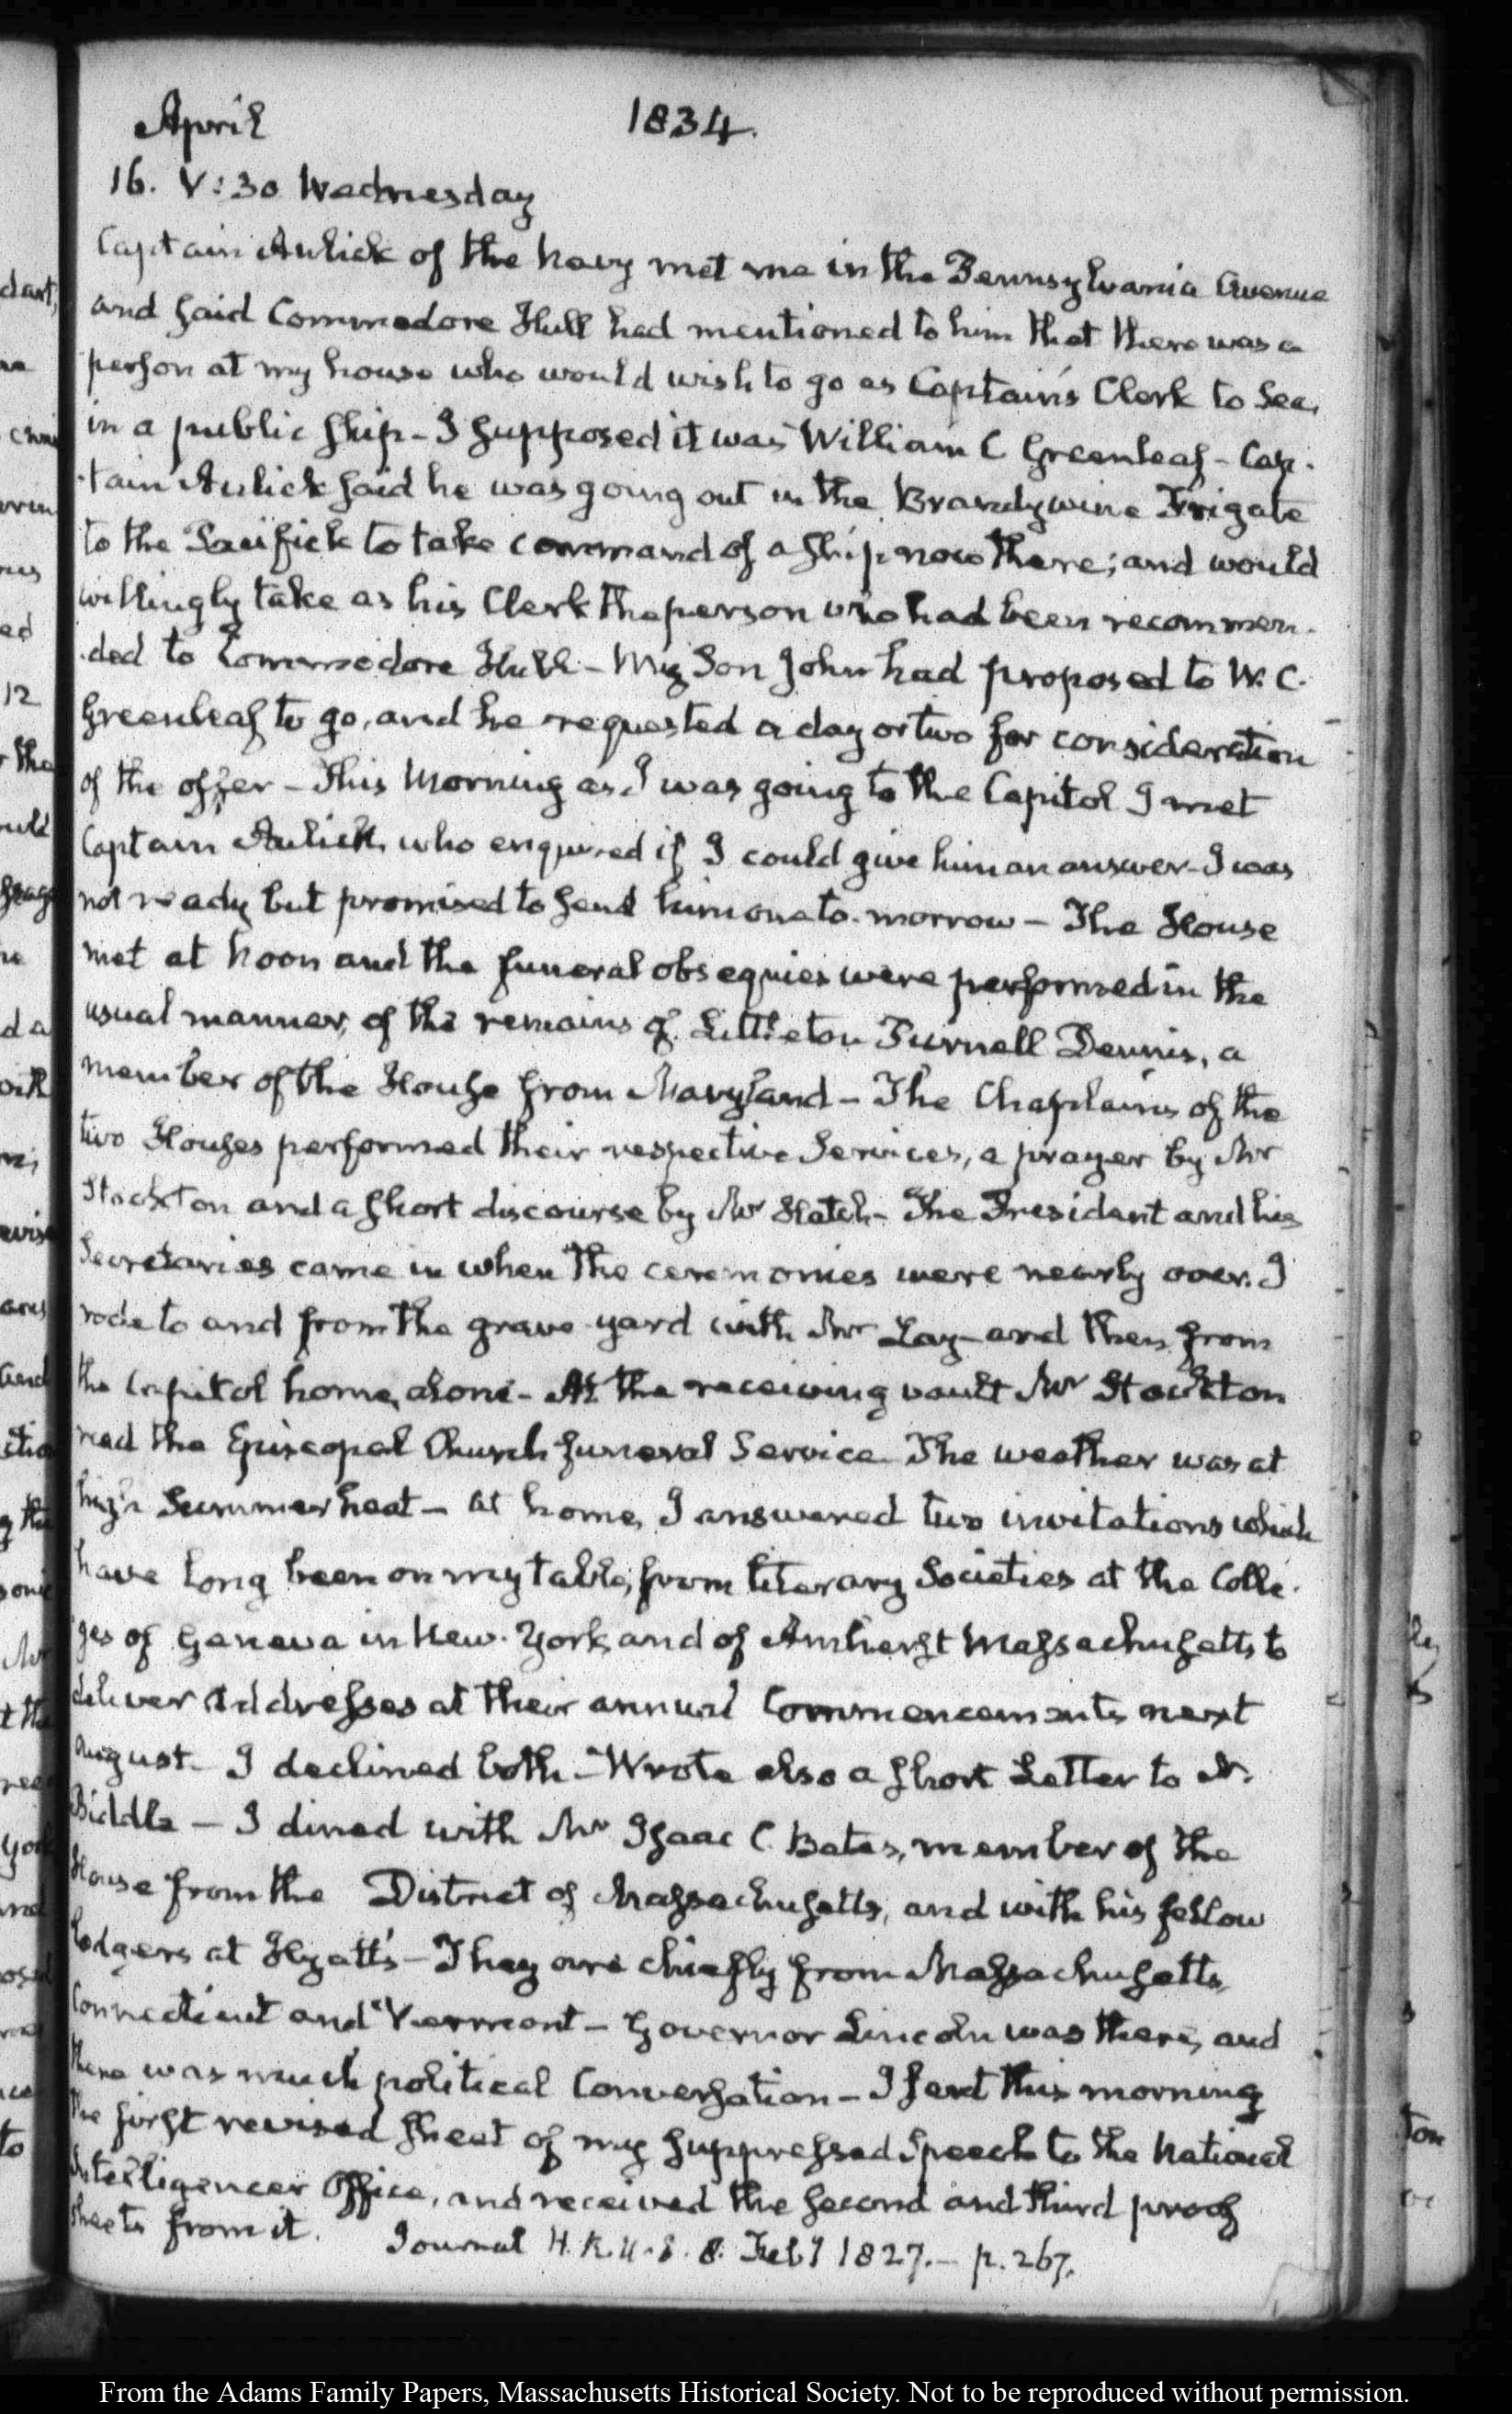 April 1834.
16. V:30 Wednesday
Captain Aulick of the Navy met me in the Pennsylvania Avenue
and said Commodore Hull had mentioned to him that there was a
person at my house who would wish to go as Captain's Clerk to Sea,
in a public ship - I supposed it was William C Greenleaf - Cap-
-tain Aulick said he was going out in the Brandywine Frigate
to the Pacifick to take command of a ship now there; and would
willingly take as his Clerk the person who had been recommen-
-ded to Commodore Hull - My Son John had proposed to W. C.
Greenleaf to go, and he requested a day or two for consideration
of the offer - This Morning as I was going to the Capitol I met
Captain Aulick, who enquired if I could give him an answer - I was
not ready but promised to send him one to-morrow - The House
met at Noon and the funeral obsequies were performed in the
usual manner, of the remains of Littleton Purnell Dennis, a
member of the House from Maryland - The Chaplains of the
two Houses performed their respective Services, a prayer by Mr
Stockton and a short discourse by Mr Hatch - The President and his
Secretaries came in when the ceremonies were nearly over. I
rode to and from the grave-yard with Mr Lay - and then from
the Capitol home, alone - At the receiving vault Mr Stockton
read the Episcopal Church funeral Service. The weather was at
high Summer heat - at home, I answered two invitations which
have long been on my table, from literary Societies at the Colle-
ges of Geneva in New-York, and of Amherst Massachusetts to
deliver Addresses at their annual Commencements next
August - I declined both - Wrote also a short Letter to N.
Biddle - I dined with Mr Isaac C. Bates, member of the
House from the District of Massachusetts, and with his fellow
lodgers at Hyatt's - They are chiefly from Massachusetts,
Connecticut and Vermont - Governor Lincoln was there, and
there was much political Conversation - I sent this morning
the first revised sheet of my suppressed Speech to the National
Intelligencer Office, and received the second and third proof
sheets from it. Journal H. R. U. S. 8. Feby 1827. - p. 267.
From the Adams Family Papers, Massachusetts Historical Society. Not to be reproduced without permission.